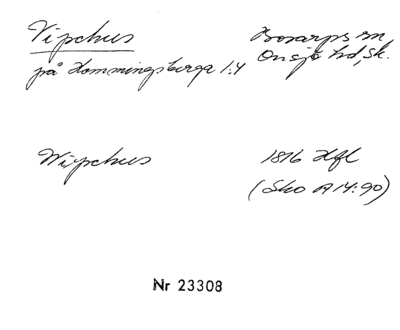 Vipehus
Bosarps sn,
på Hommingsberga 1:4
Onsjö hd, Sk.
Wipehus
1816 Hfl
(Sko A14:90)
Nr 23308